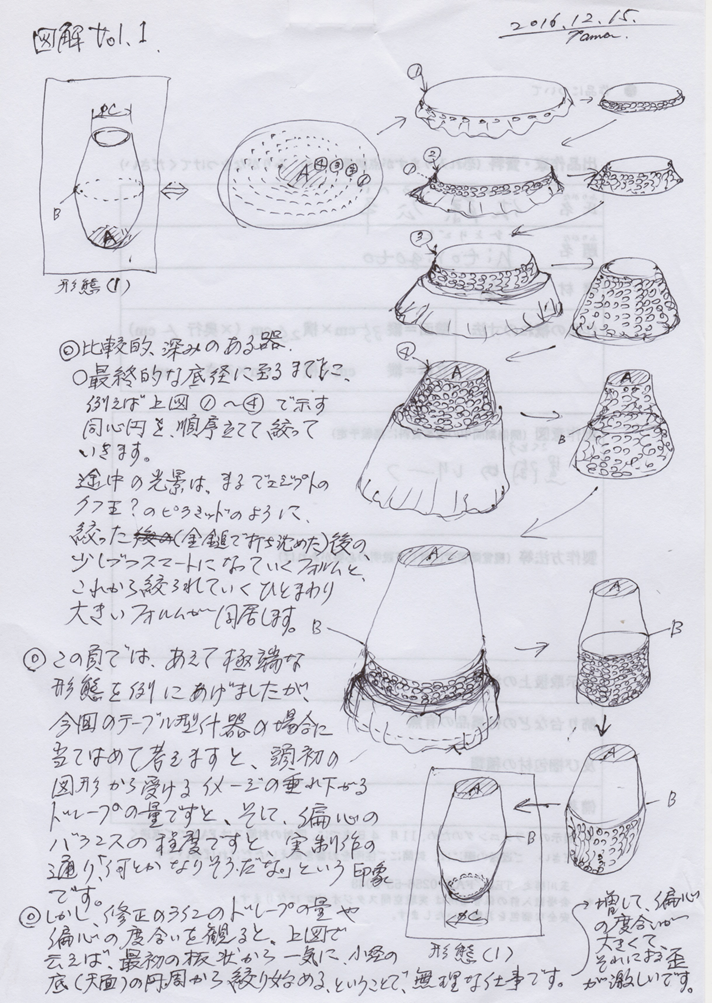 図解 Vol.1.
2016.12.15.
Tama.
φC
B
A
④③②①
形態(1)
①
②
③
④
A
A
B
A
B
A
B
A
B
A
B
φC
形態(1)
◎比較的、深みのある器.
○最終的な底径に至るまでに、
例えば上図①〜④で示す
同心円を、順序立てて絞って
いきます。
途中の光景は、まるでエジプトの
クフ王?のピラミッドのように、
絞った(金鎚で打ち沈めた)後の
少しづつスマートになっていくフォルムと、
これから絞られていくひとまわり
大きいフォルムが同居します。
◎この頁では、あえて極端な
形態を例にあげましたが、
今回のテーブル型什器の場合に
当てはめて考えますと、頭初の
図形から受けるイメージの垂れ下がる
ドレープの量ですと、そして、偏心の
バランスの程度ですと、実制作の
通り「何とかなりそうだな」という印象
です。
◎しかし、修正の3612のドレープの量や
偏心の度合いを観ると、上図で
云えば、最初の板状から一気に、小径の
底(天面)の円周から絞り始める、ということで、無理な仕事です。
増して、偏心
の度合いが
大きくて
それにお歪
が激しいです。